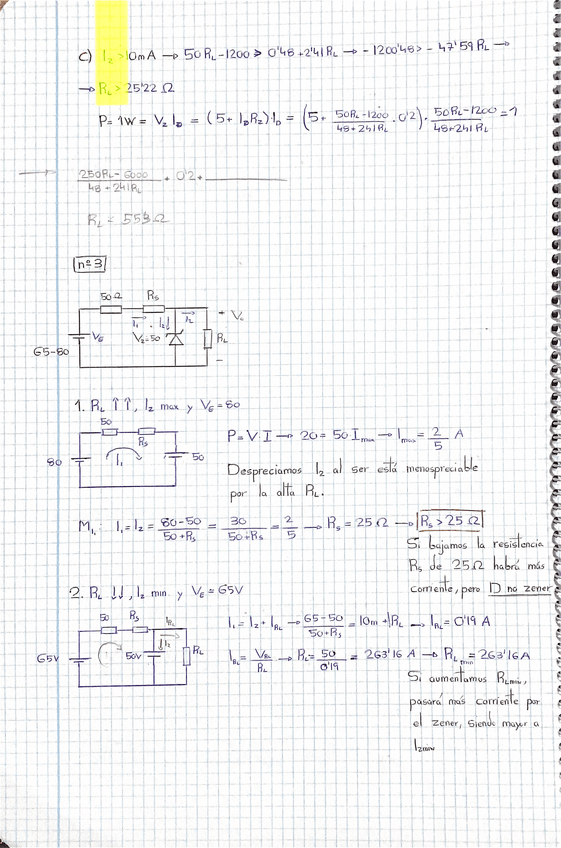 c) I_Z > 10mA → 50R_L-1200 > 0'48+2'41R_L → -1200'48 > -47'59R_L →
→ R_L > 25'22 Ω
P= 1W = V_Z I_D = (5+ I_D R_Z)·I_D = (5+ (50R_L-1200)/(48+241R_L) · 0'2) · (50R_L-1200)/(48+241R_L) = 1
→ (250R_L-6000)/(48+241R_L) + 0'2+
R_L = 555Ω
nº3
50Ω R_S
I_1 I_Z I_L + V_o
V_G V_Z=50 R_L
65-80 -
1. R_L ↑↑, I_Z max y V_G=80
50 R_S
80 I_1 50
P=V·I → 20=50 I_max → I_max = 2/5 A
Despreciamos I_L al ser está menospreciable
por la alta R_L.
M_1: I_1=I_Z = (80-50)/(50+R_S) = 30/(50+R_S) = 2/5 → R_S=25Ω → R_S > 25 Ω
Si bajamos la resistencia
R_S de 25Ω habrá más
corriente, pero D no zener
2. R_L ↓↓, I_Z min y V_G=65V
50 R_S I_RL
65V 50V I_Z R_L
I_1=I_Z+I_RL → (65-50)/(50+R_S) = 10m+I_RL → I_RL=0'19 A
I_RL = V_RL/R_L → R_L= 50/0'19 = 263'16 A → R_Lmin = 263'16 A
Si aumentamos R_Lmin,
pasará más corriente por
el zener, siendo mayor a
I_Zmin